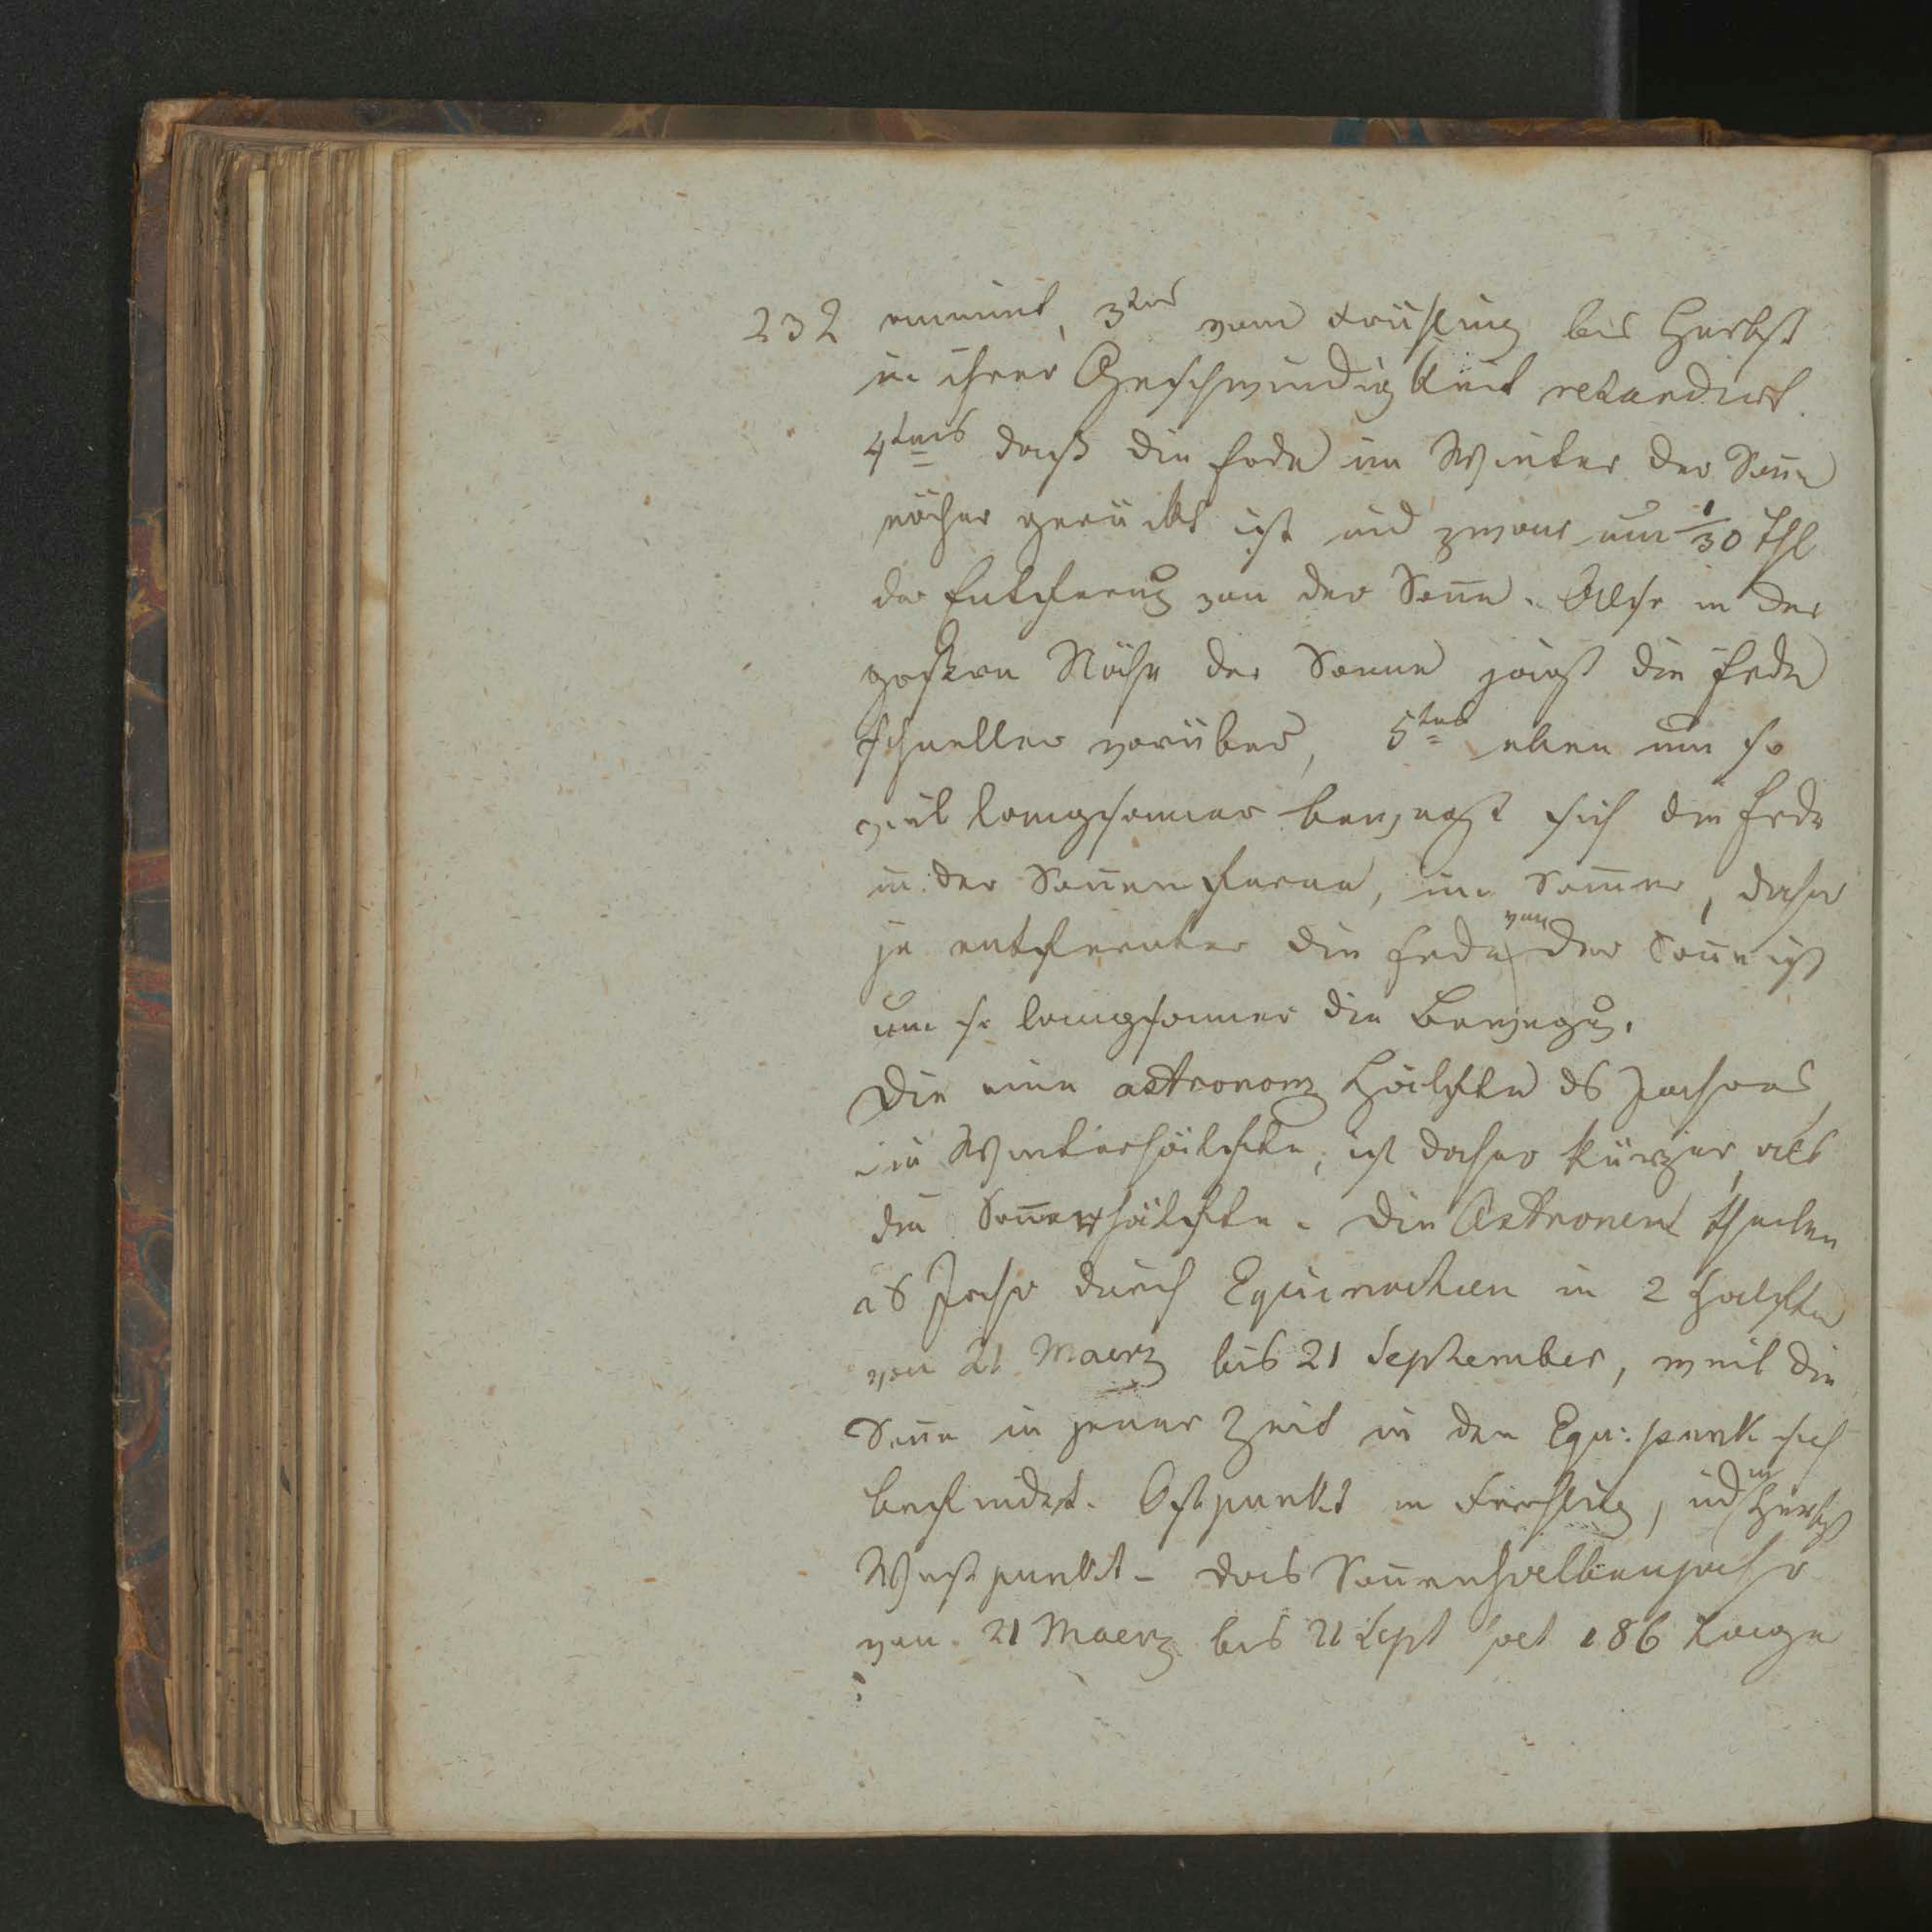 232 nimmt, 3tens vom Frühling bis Herbst
in ihrer Geschwindigkeit retardirt.
4tens daß die Erde im Winter der Soñe
näher gerückt ist und zwar um 1/30 Thl
der Entfernũg von der Soñe. Also in der
großern Nähe der Sonne jagt die Erde
schneller vorüber, 5tens eben um so
viel langsamer bewegt sich die Erde
in der Soñenferne, im Som̃er, daher
je entfernter die Erde von der Soñe ist
um so langsamer die Bewegũg.
Die eine astronom Hälfte ds Jahres
die Winterhälfte, ist daher kürzer als
die Som̃erhälfte. Die Astronom theilen
ds Jahr durch Equinoctien in 2 Halften
von 21 Maerz bis 21 September, weil die
Soñe in jener Zeit in den Equ: punk sich
befindet. Ostpunkt im Fruhling, ũd im Herbst
Westpunkt – das Soñenhalbenjahr
von 21 Maerz bis 21 Sept hat 186 Tage